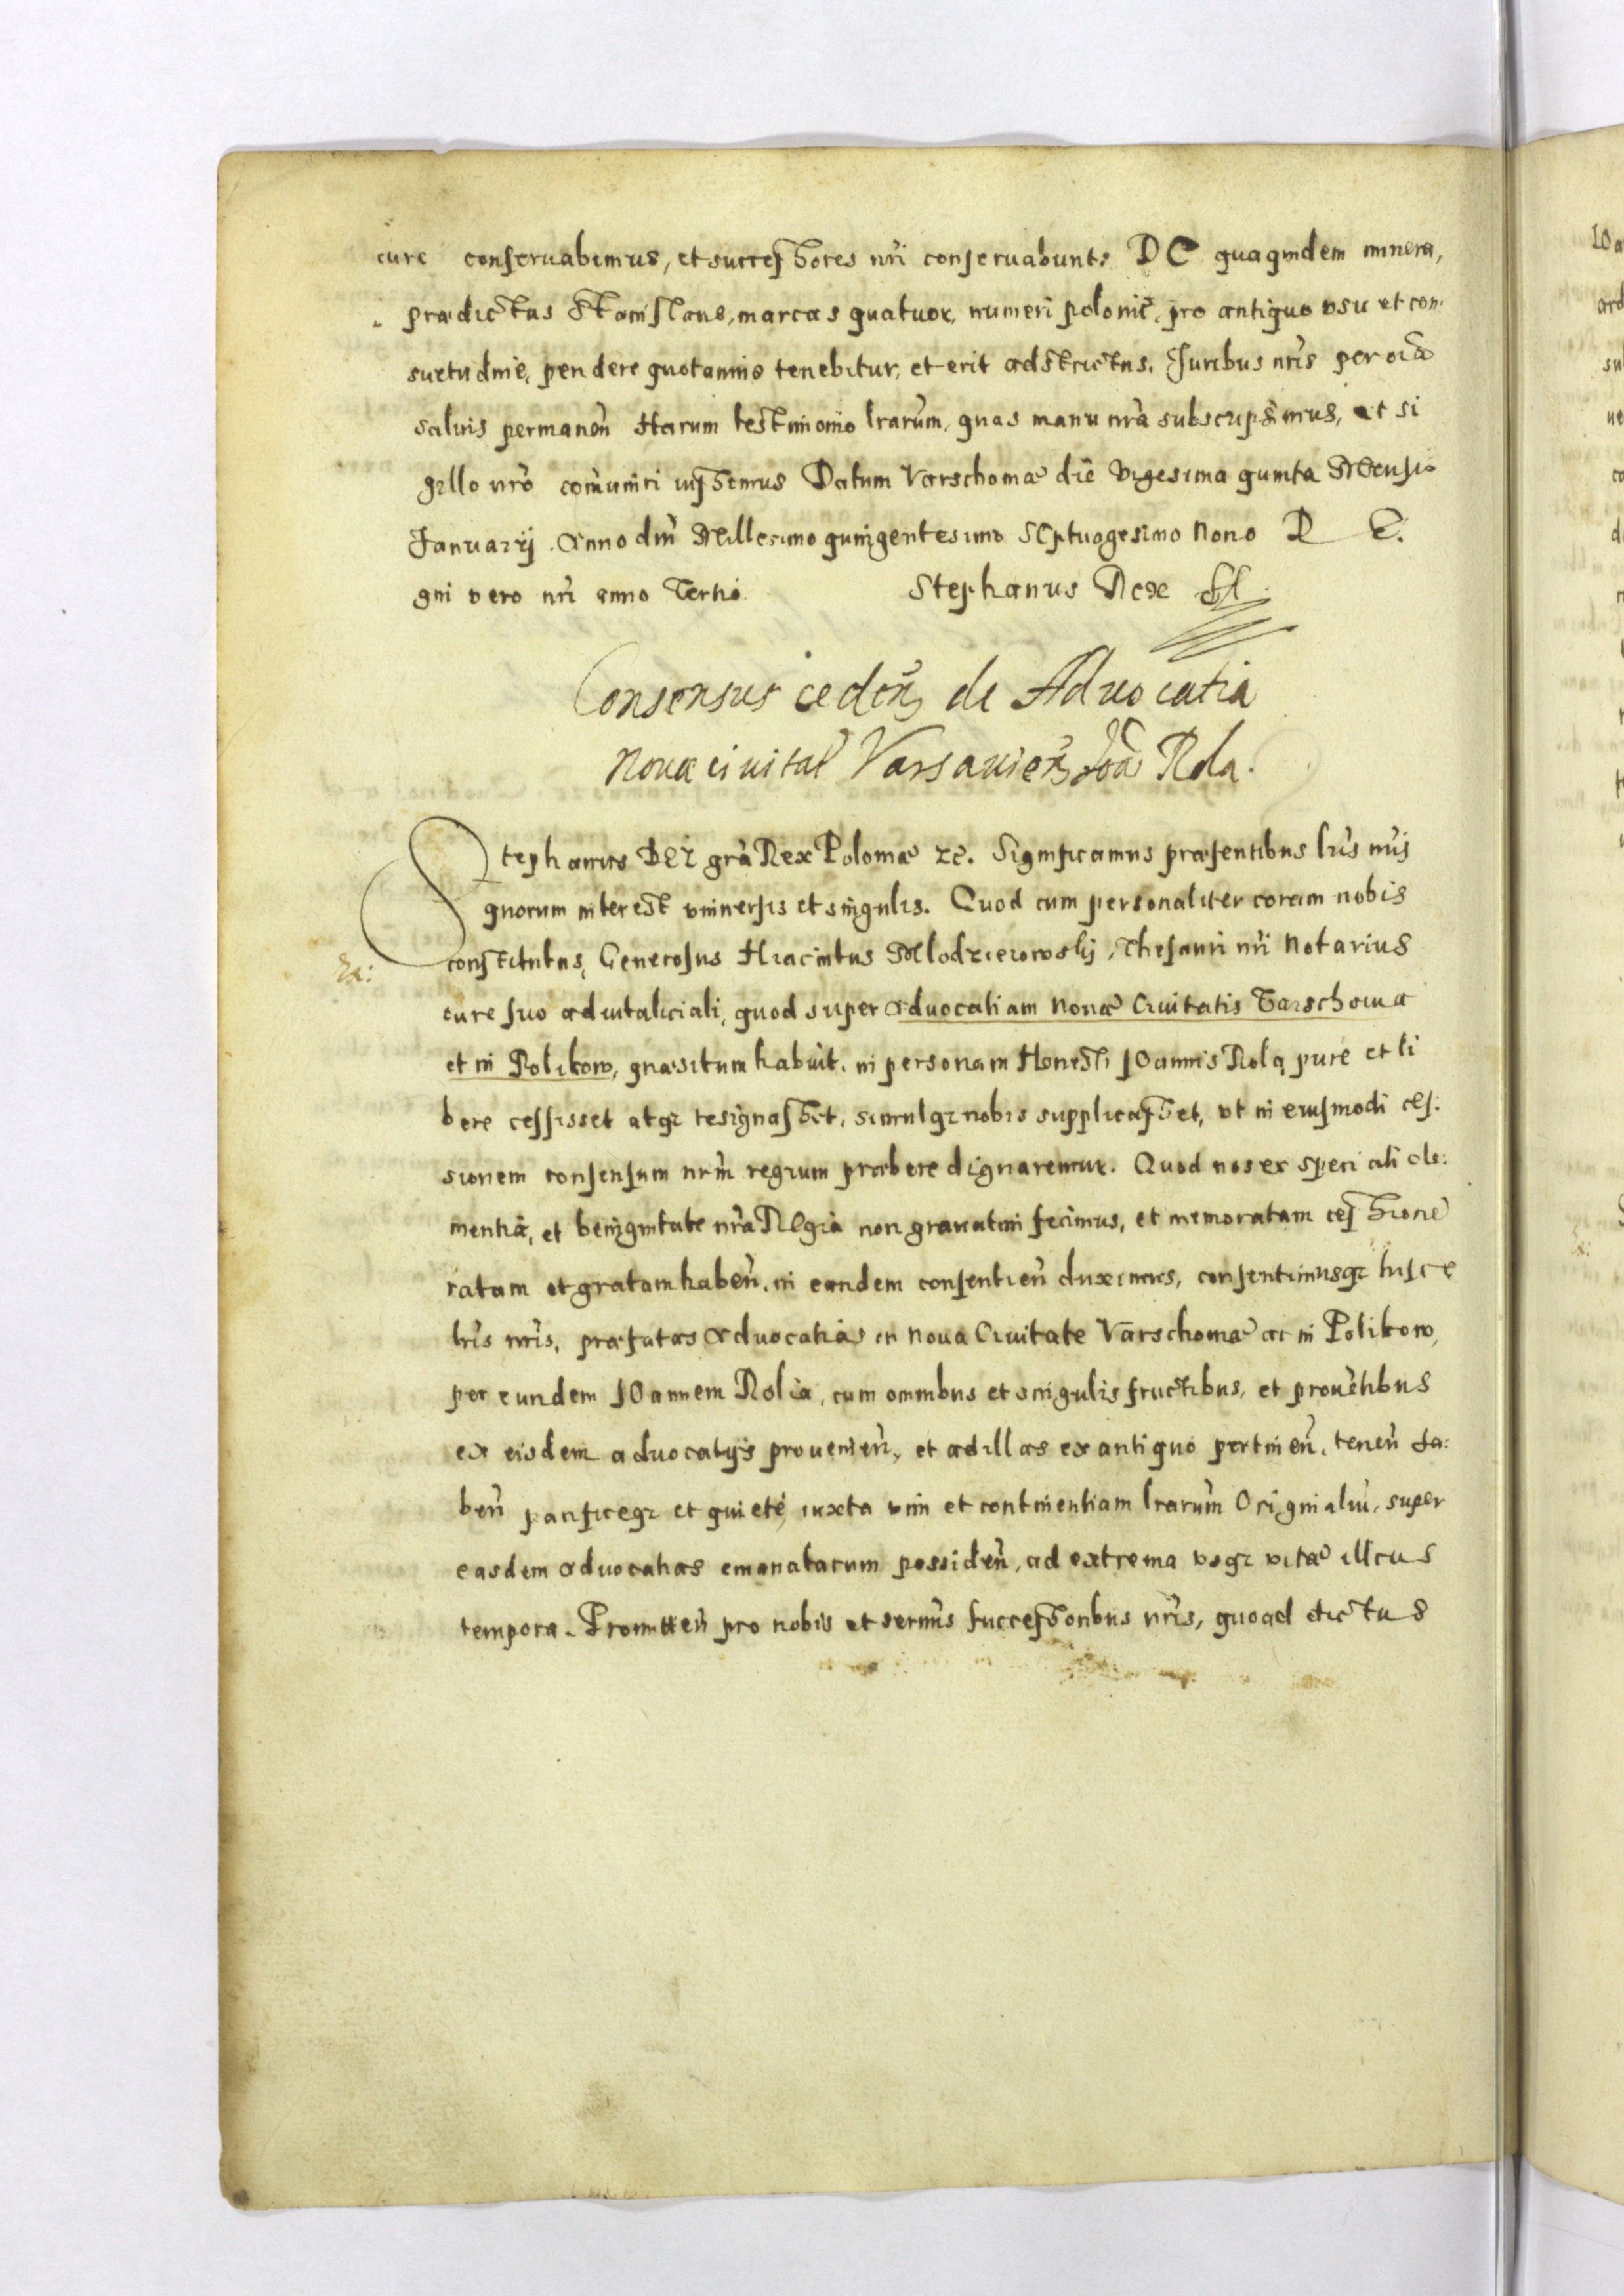 iure conseruabimus, et successores nri conseruabunt: DE qua quidem minera,
prædictus Stanislaus, marcas quatuor, numeri polonic, pro antiquo vsu et con-
suetudine, pendere quotannis tenebitur, et erit adstrictus. Juribus nris per oia
saluis permanen Harum testimonio lrarum, quas manu nra subscripsimus, et si
gillo nro comuniri iussimus Datum Varschoviæ die vigesima quinta Mensis
Januarij Anno dni Millesimo quingentesimo Septuagesimo Nono R E.
gni vero nri anno Tertio Stephanus Rex
Consensus ceden de Aduocatia
Nouæ ciuitat Varsauien Joa Rola.
Stephanus DEI gra Rex Poloniæ zc. Significamus præsentibus lris nris
quorum interest vniuersis et singulis. Quod cum personaliter coram nobis
constitutus, Generosus Hiacintus Mlodzieiowskj, Thesauri nri Notarius
iure suo aduitaliciali, quod super Aduocatiam Nouæ Ciuitatis Varschouiæ
et in Polikow, quæsitum habuit, in personam Honesti JOannis Rola, pure et li
bere cessisset atq resignasset, simulq nobis supplicasset, vt in eiusmodi ces:
sionem consensum nrm regium præbere dignaremur. Quod nos ex speciali cle:
mentia, et benignitate nra REgia non grauatim fecimus, et memoratam cessione
ratam et gratam haben, in eandem consentien duximus, consentimusq hisce
lris nris, præfatas Aduocatias in Noua Ciuitate Varschouiæ ac in Polikow,
per eundem JOannem Rolia, cum omnibus et singulis fructibus, et prouetibus
ex eisdem aduocatijs prouenien, et ad illas ex antiquo pertinen, tenen ha:
ben pacificeq et quiete, iuxta vim et continentiam lrarum Originaliu, super
easdem aduocatias emanatarum possiden, ad extrema vsq vitæ illius
tempora. Promitten pro nobis et sermis successoribus nris, quoad dictus